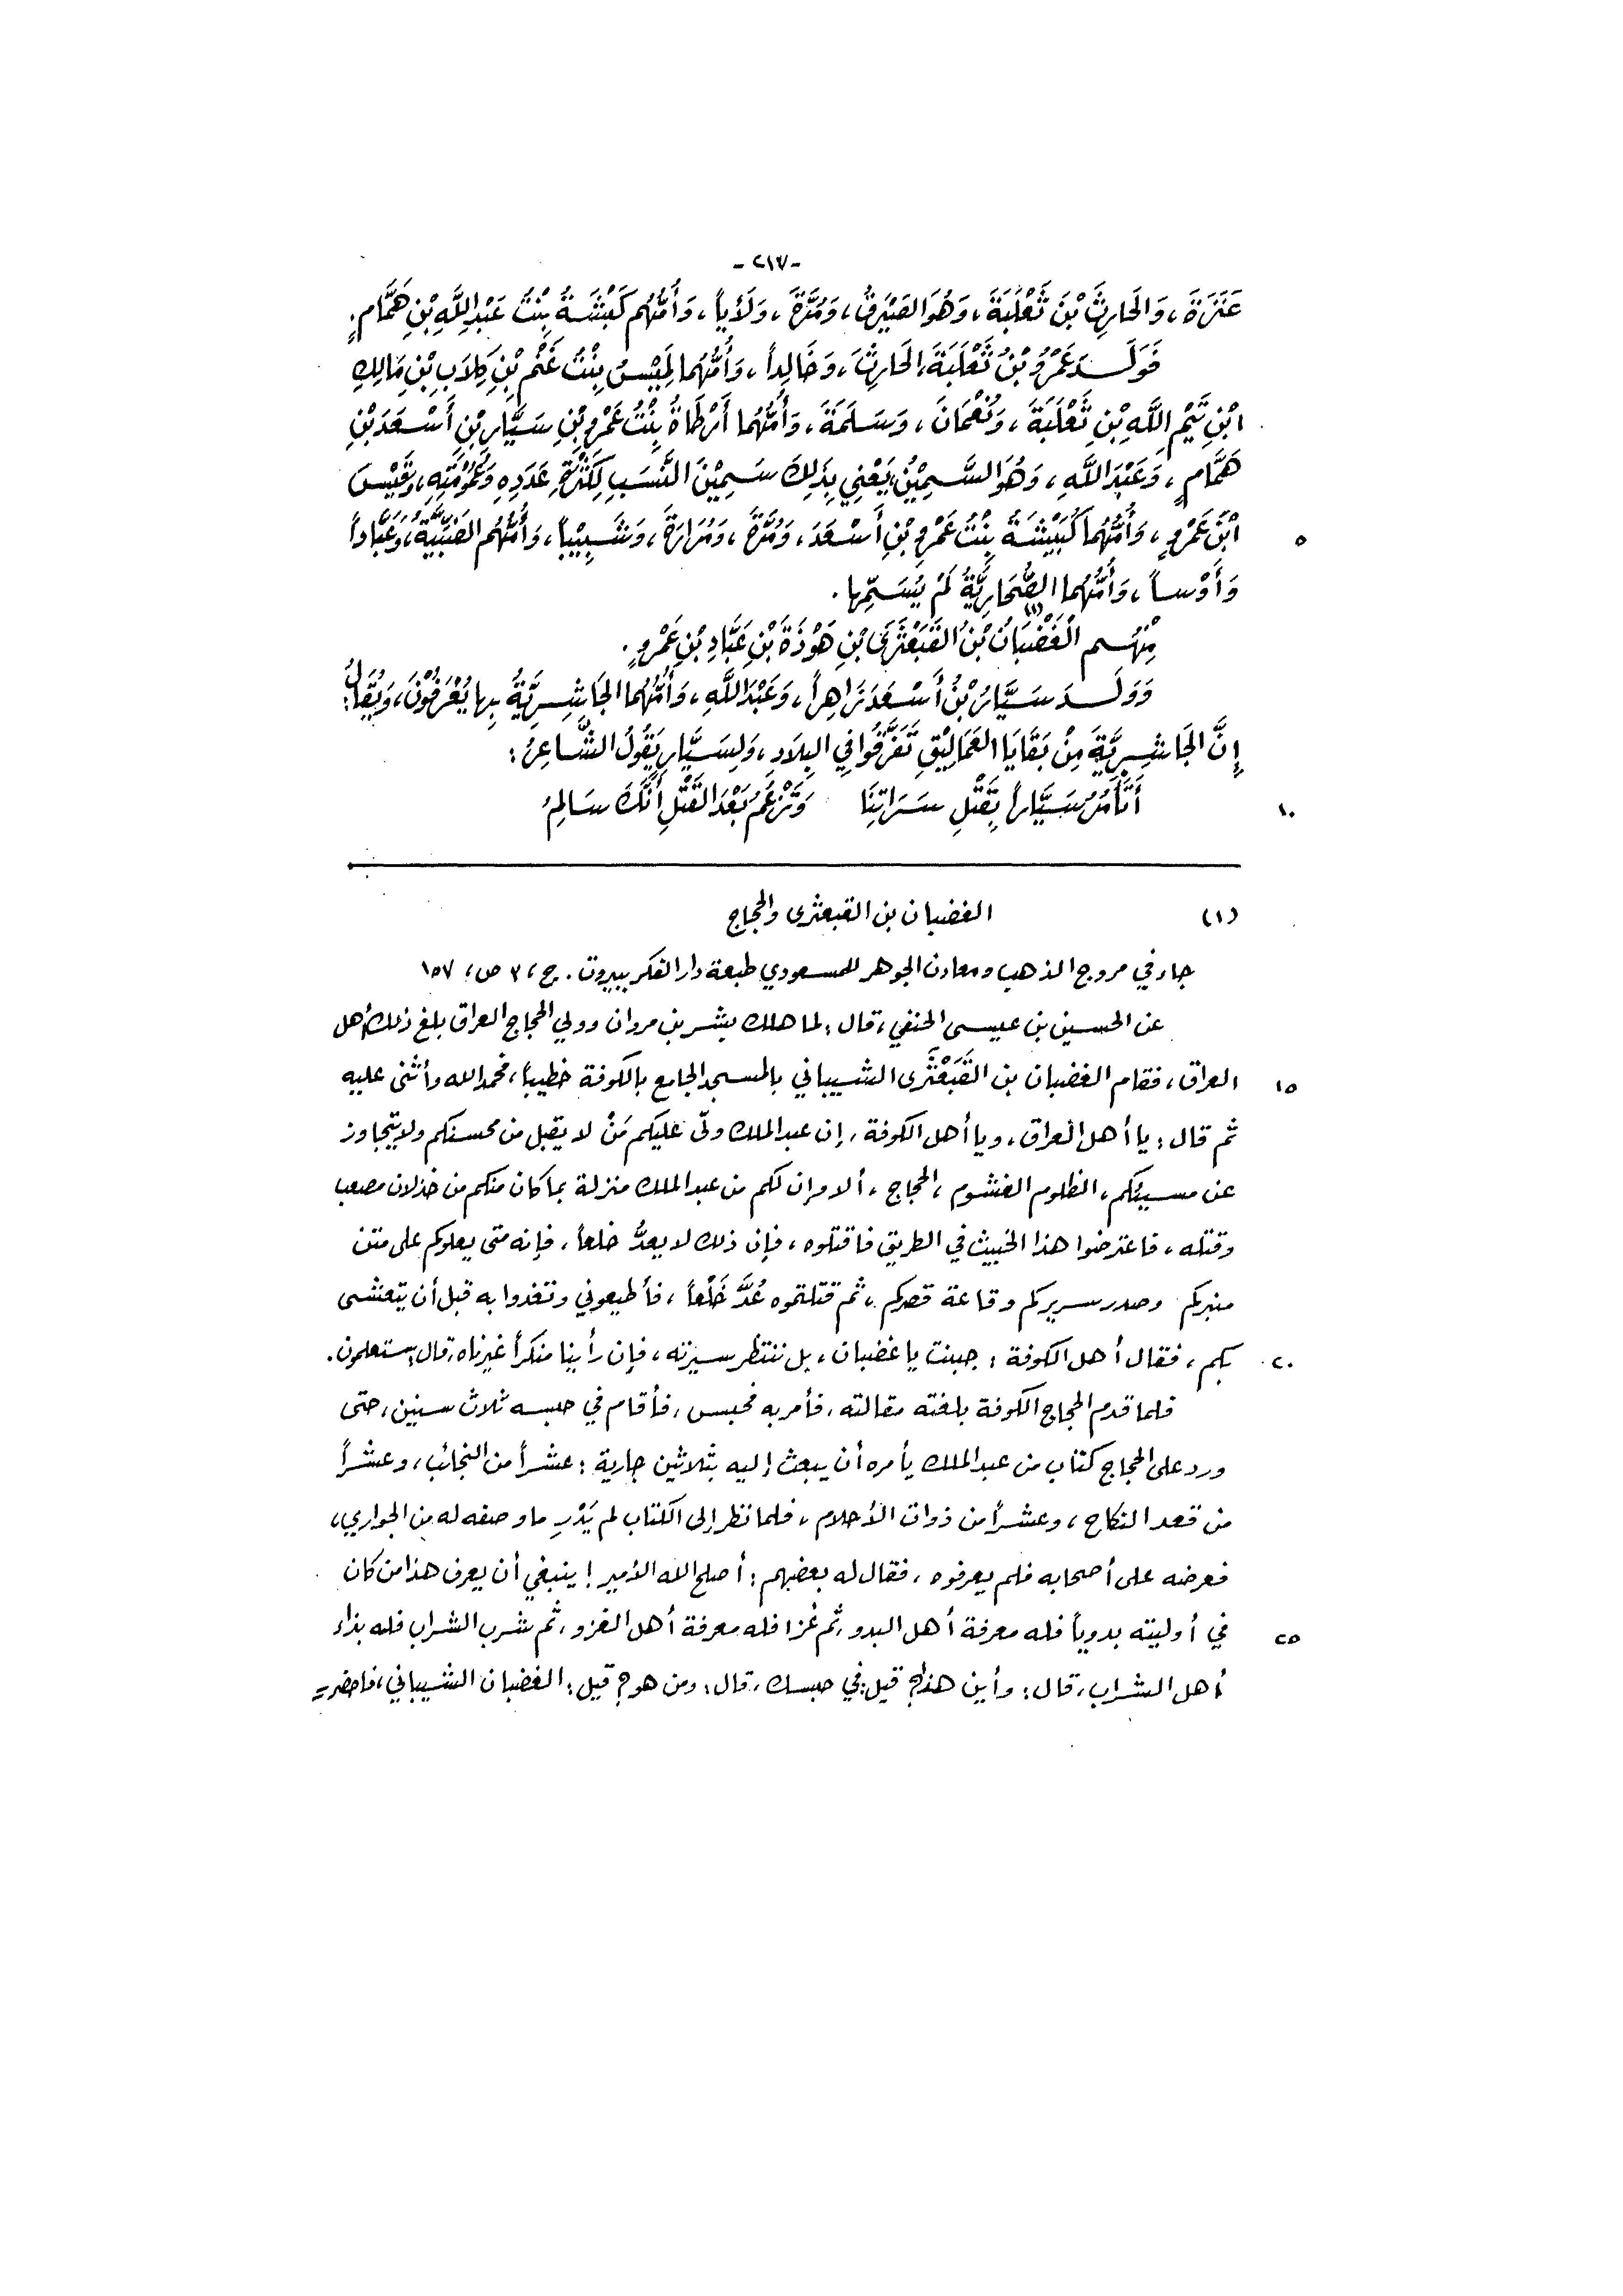 -٢١٧-
عَنَزَةَ، وَالحَارِثَ بْنَ ثَعْلَبَةَ، وَهُوَ الصَّيْرَفُ، وَمُرَّةَ، وَلَأْياً، وَأُمُّهُم كَبْشَةُ بِنْتُ عَبْدِ اللَّهِ بْنِ هَمَّامٍ.
فَوَلَدَ عَمْرُو بْنُ ثَعْلَبَةَ الحَارِثَ، وَخَالِداً، وَأُمُّهُما لَمِيْسُ بِنْتُ غَنْمِ بْنِ كِلَابِ بْنِ مَالِكِ
ابْنِ تَيْمِ اللَّهِ بْنِ ثَعْلَبَةَ، وَنُعْمَانَ، وَسَلَمَةَ، وَأُمُّهُما أَرْطَاةُ بِنْتُ عَمْرِو بْنِ سَيَّارِ بْنِ أَسْعَدَ بْنِ
هَمَّامٍ، وَعَبْدَ اللَّهِ، وَهُوَ السَّمِيْنُ، يَعْنِي بِذَلِكَ سَمِيْنَ النَّسَبِ لِكَثْرَةِ عَدَدِهِ وَعُمُوْمَتِهِ، وَقَيْسَ
ابْنَ عَمْرٍو، وَأُمُّهُما كُبَيْشَةُ بِنْتُ عَمْرِو بْنِ أَسْعَدَ، وَمُرَّةَ، وَمُرَارَةَ، وَشَبِيْباً، وَأُمُّهُم الضَّبِّيَّةُ، وَعَبَّاداً ٥
وَأَوْساً، وَأُمُّهُما الصُّحَارِيَّةُ لَمْ يُسَمِّها.
مِنْهُم الغَضْبَانُ بْنُ القَبَعْثَرَى (١) بْنِ هَوْذَةَ بْنِ عَبَّادِ بْنِ عَمْرٍو.
وَوَلَدَ سَيَّارُ بْنُ أَسْعَدَ زَاهِراً، وَعَبْدَ اللَّهِ، وَأُمُّهُما الجَاشِرِيَّةُ بِها يُعْرَفُوْنَ، وَيُقَالُ:
إِنَّ الجَاشِرِيَّةَ مِنْ بَقَايَا العَمَالِيْقِ تَفَرَّقُوا فِي البِلَادِ، وَلِسَيَّارٍ يَقُولُ الشَّاعِرُ:
أَتَأْمُرُ سَيَّاراً بِقَتْلِ سَرَاتِنَا وَتَزْعُمُ بَعْدَ القَتْلِ أَنَّكَ سَالِمُ ١٠
(١) الغضبان بن القبعثرى والحجاج
جاء في مروج الذهب ومعادن الجوهر للمسعودي طبعة دار الفكر ببيروت. ج، ٣ ص، ١٥٧
عن الحسين بن عيسى الحنفي، قال: لما هلك بشر بن مروان وولي الحجاج العراق بلغ ذلك أهل
العراق، فقام الغضبان بن القَبَعْثَرى الشيباني بالمسجد الجامع بالكوفة خطيباً، فحمد الله وأثنى عليه ١٥
ثم قال: يا أهل العراق، ويا أهل الكوفة، إن عبد الملك ولّى عليكم مَنْ لا يقبل من محسنكم ولا يتجاوز
عن مسيئكم، الظلوم الغشوم، الحجاج، ألا وإن لكم من عبد الملك منزلة بما كان منكم من خذلان مصعب
وقتله، فاعترضوا هذا الخبيث في الطريق فاقتلوه، فإن ذلك لا يعدُّ خلعاً، فإنه متى يعلوكم على متن
منبركم وصدر سريركم وقاعة قصركم، ثم قتلتموه عُدَّ خَلْعاً، فأطيعوني وتغدوا به قبل أن يتعشى
بكم، فقال أهل الكوفة: جبنت يا غضبان، بل ننتظر سيرته، فإن رأينا منكراً غيرناه، قال: ستعلمون. ٢٠
فلما قدم الحجاج الكوفة بلغته مقالته، فأمر به فحبس، فأقام في حبسه ثلاث سنين، حتى
ورد على الحجاج كتاب من عبد الملك يأمره أن يبعث إليه بثلاثين جارية: عشراً من النجائب، وعشراً
من قعد النكاح، وعشراً من ذوات الأحلام، فلما نظر إلى الكتاب لم يَدْرِ ما وصفه له من الجواري،
فعرضه على أصحابه فلم يعرفوه، فقال له بعضهم: أصلح الله الأمير! ينبغي أن يعرف هذا من كان
في أوليته بدوياً فله معرفة أهل البدو، ثم غزا فله معرفة أهل الغزو، ثم شرب الشراب فله بذاء ٢٥
أهل الشراب، قال: وأين هذا؟ قيل: في حبسك، قال: ومن هو؟ قيل: الغضبان الشيباني، فأحضر =